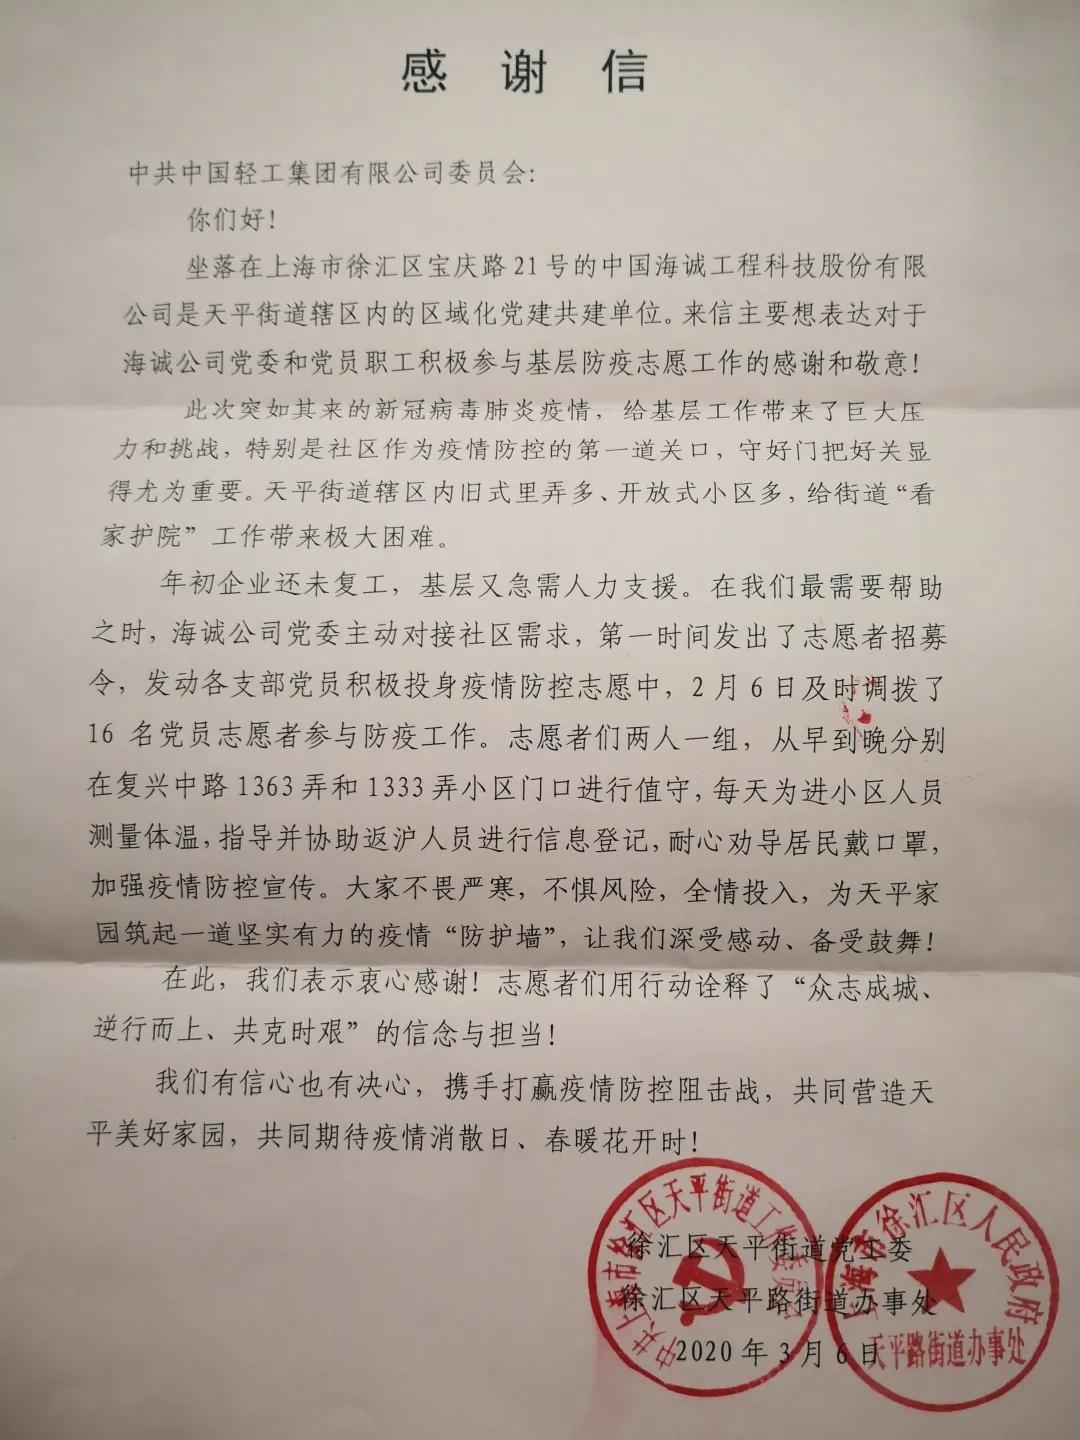 感谢信
中共中国轻工集团有限公司委员会:
你们好!
坐落在上海市徐汇区宝庆路21号的中国海诚工程科技股份有限
公司是天平街道辖区内的区域化党建共建单位。来信主要想表达对于
海诚公司党委和党员职工积极参与基层防疫志愿工作的感谢和敬意!
此次突如其来的新冠病毒肺炎疫情，给基层工作带来了巨大压
力和挑战，特别是社区作为疫情防控的第一道关口，守好门把好关显
得尤为重要。天平街道辖区内旧式里弄多、开放式小区多，给街道“看
家护院”工作带来极大困难。
年初企业还未复工，基层又急需人力支援。在我们最需要帮助
之时，海诚公司党委主动对接社区需求，第一时间发出了志愿者招募
令，发动各支部党员积极投身疫情防控志愿中，2月6日及时调拨了
16 名党员志愿者参与防疫工作。志愿者们两人一组，从早到晚分别
在复兴中路1363弄和1333弄小区门口进行值守，每天为进小区人员
测量体温，指导并协助返沪人员进行信息登记，耐心劝导居民戴口罩，
加强疫情防控宣传。大家不畏严寒，不惧风险，全情投入，为天平家
园筑起一道坚实有力的疫情“防护墙”，让我们深受感动、备受鼓舞!
在此，我们表示衷心感谢! 志愿者们用行动诠释了“众志成城、
逆行而上、共克时艰”的信念与担当!
我们有信心也有决心，携手打赢疫情防控阻击战，共同营造天
平美好家园，共同期待疫情消散日、春暖花开时!
徐汇区天平街道党工委
徐汇区天平路街道办事处
2020年3月6日
中共上海市徐汇区天平街道工作委员会
上海市徐汇区人民政府
天平路街道办事处